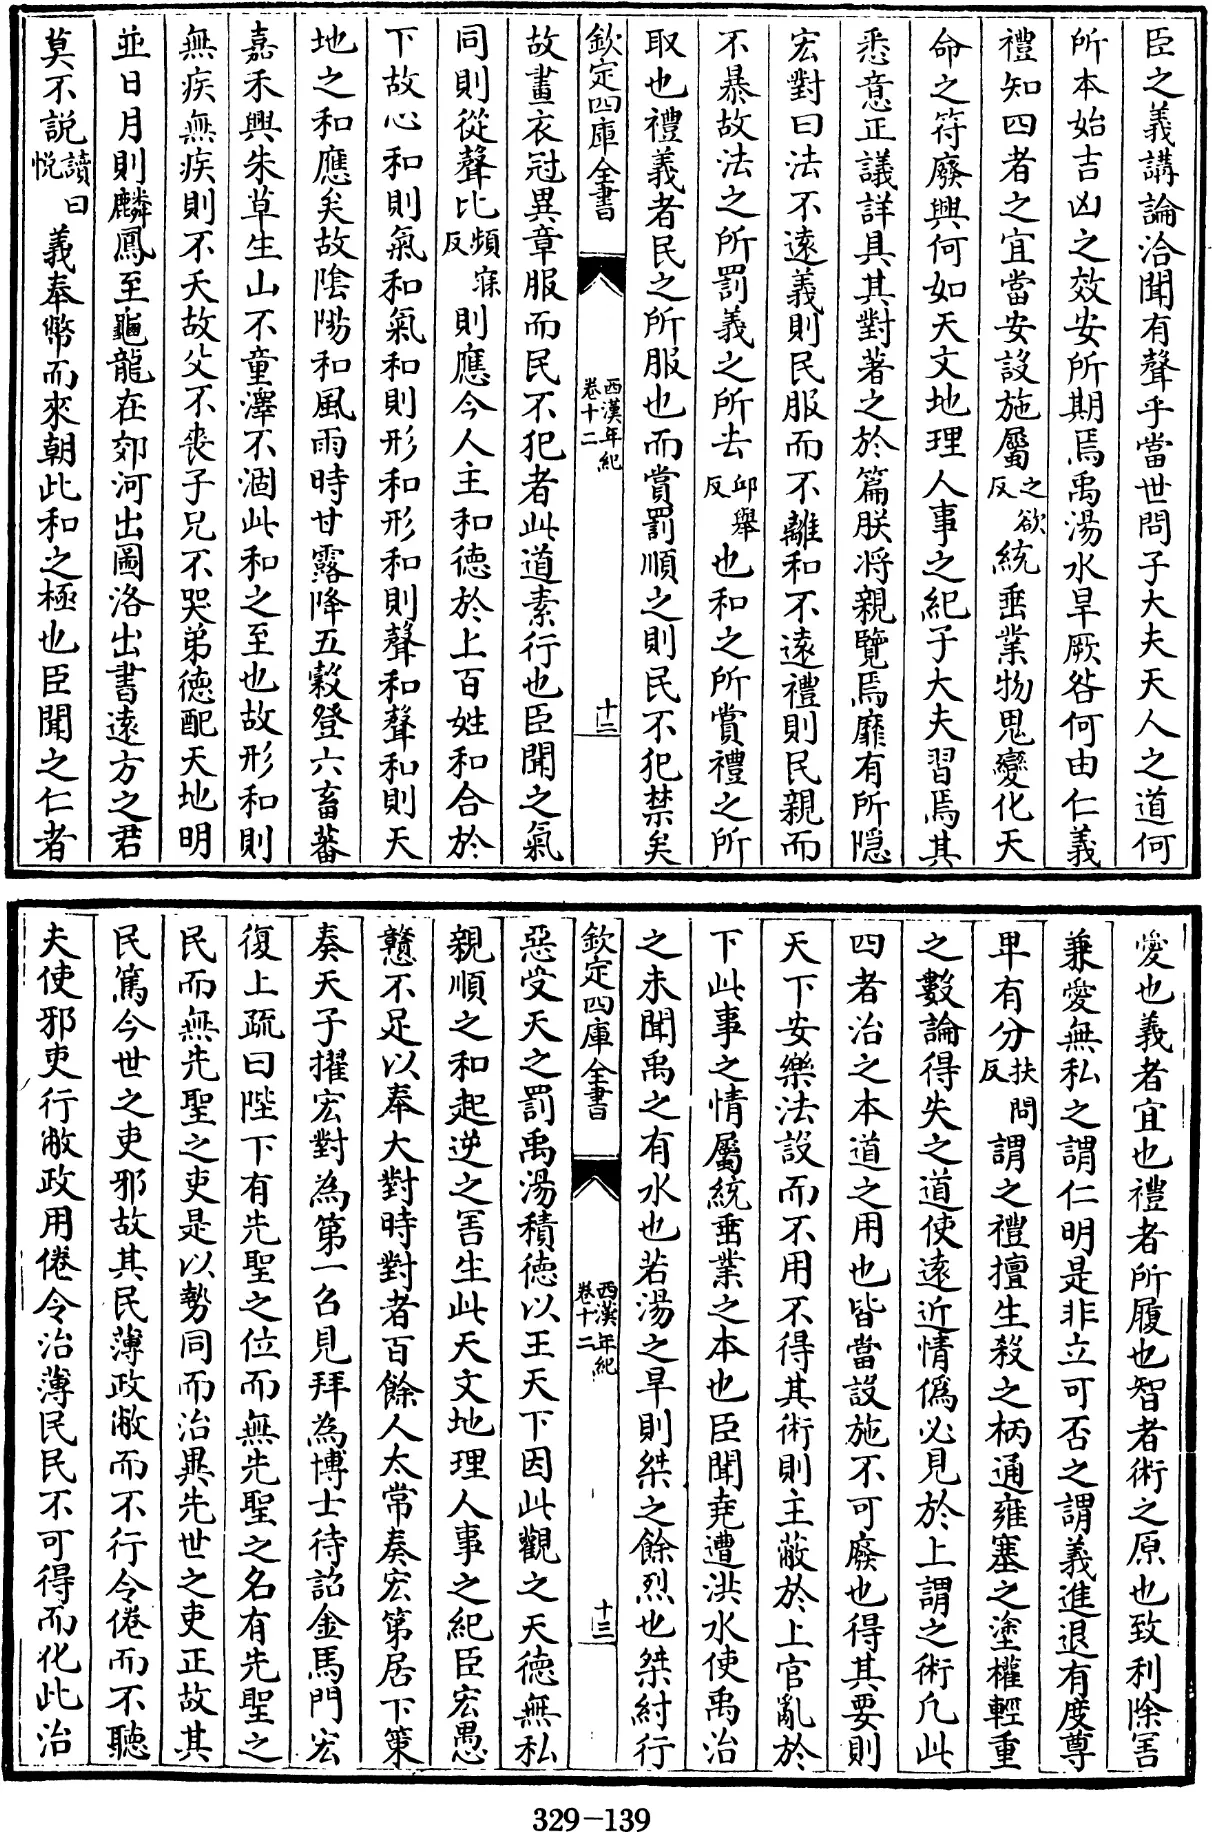 臣之義講論洽聞有聲乎當世問子大夫天人之道何
所本始吉凶之效安所期焉禹湯水旱厥咎何由仁義
禮知四者之宜當安設施屬之欲反統垂業物鬼變化天
命之符廢興何如天文地理人事之紀子大夫習焉其
悉意正議詳具其對著之於篇朕將親覽焉靡有所隱
宏對曰法不遠義則民服而不離和不遠禮則民親而
不暴故法之所罰義之所去邱舉反也和之所賞禮之所
取也禮義者民之所服也而賞罰順之則民不犯禁矣
欽定四庫全書 西漢年紀卷十二 十二
故畫衣冠異章服而民不犯者此道素行也臣聞之氣
同則從聲比頻寐反則應今人主和德於上百姓和合於
下故心和則氣和氣和則形和形和則聲和聲和則天
地之和應矣故陰陽和風雨時甘露降五穀登六畜蕃
嘉禾興朱草生山不童澤不涸此和之至也故形和則
無疾無疾則不夭故父不喪子兄不哭弟德配天地明
並日月則麟鳳至龜龍在郊河出圖洛出書遠方之君
莫不説讀曰悦義奉幣而來朝此和之極也臣聞之仁者
愛也義者宜也禮者所履也智者術之原也致利除害
兼愛無私之謂仁明是非立可否之謂義進退有度尊
卑有分扶問反謂之禮擅生殺之柄通雍塞之塗權輕重
之數論得失之道使遠近情僞必見於上謂之術凡此
四者治之本道之用也皆當設施不可廢也得其要則
天下安樂法設而不用不得其術則主蔽於上官亂於
下此事之情屬統垂業之本也臣聞堯遭洪水使禹治
之未聞禹之有水也若湯之旱則桀之餘烈也桀紂行
欽定四庫全書 西漢年紀卷十二 十三
惡受天之罰禹湯積德以王天下因此觀之天德無私
親順之和起逆之害生此天文地理人事之紀臣宏愚
戇不足以奉大對時對者百餘人太常奏宏第居下策
奏天子擢宏對為第一召見拜為博士待詔金馬門宏
復上疏曰陛下有先聖之位而無先聖之名有先聖之
民而無先聖之吏是以勢同而治異先世之吏正故其
民篤今世之吏邪故其民薄政敝而不行令倦而不聽
夫使邪吏行敝政用倦令治薄民民不可得而化此治
329-139